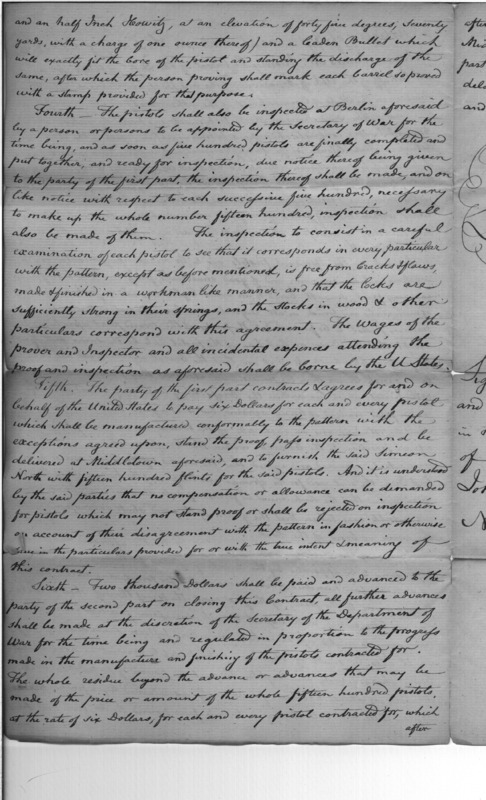 and an half Inch Howitz, at an elevation of forty five degrees, Seventy
yards, with a charge of one ounce thereof) and a Leaden Bullet which
will exactly fit the bore of the pistol and standing the discharge of the
same, after which the person proving shall mark each barrel so proved
with a stamp provided for that purpose.
Fourth — The pistols shall also be inspected at Berlin aforesaid
by a person or persons to be appointed by the Secretary of War for the
time being, and as soon as five hundred pistols are finally completed and
put together, and ready for inspection, due notice thereof being given
to the party of the first part, the inspection thereof shall be made, and on
like notice with respect to each successive five hundred, necessary
to make up the whole number fifteen hundred, inspection shall
also be made of them. The inspection to consist in a careful
examination of each pistol to see that it corresponds in every particular
with the pattern, except as before mentioned, is free from Cracks & flaws,
made & finished in a workman like manner, and that the locks are
sufficiently strong in their springs, and the stocks in wood & other
particulars correspond with this agreement. The wages of the
prover and Inspector and all incidental expences attending the
proof and inspection as aforesaid shall be borne by the U States.
Fifth. The party of the first part contracts & agrees for and on
behalf of the United States to pay Six Dollars for each and every pistol
which shall be manufactured conformably to the pattern with the
exceptions agreed upon, stand the proof pass inspection and be
delivered at Middletown aforesaid, and to furnish the said Simeon
North with fifteen hundred flints for the said pistols. And it is understood
by the said parties that no compensation or allowance can be demanded
for pistols which may not stand proof or shall be rejected on inspection
on account of their disagreement with the pattern in fashion or otherwise
in the particulars provided for or with the true intent & meaning of
this contract.
Sixth — Two thousand Dollars shall be paid and advanced to the
party of the second part on closing this Contract, all further advances
shall be made at the discretion of the Secretary of the Department of
War for the time being and regulated in proportion to the progress
made in the manufacture and finishing of the pistols contracted for.
The whole residue beyond the advance or advances that may be
made of the price or amount of the whole fifteen hundred pistols,
at the rate of six Dollars, for each and every pistol contracted for, which
after